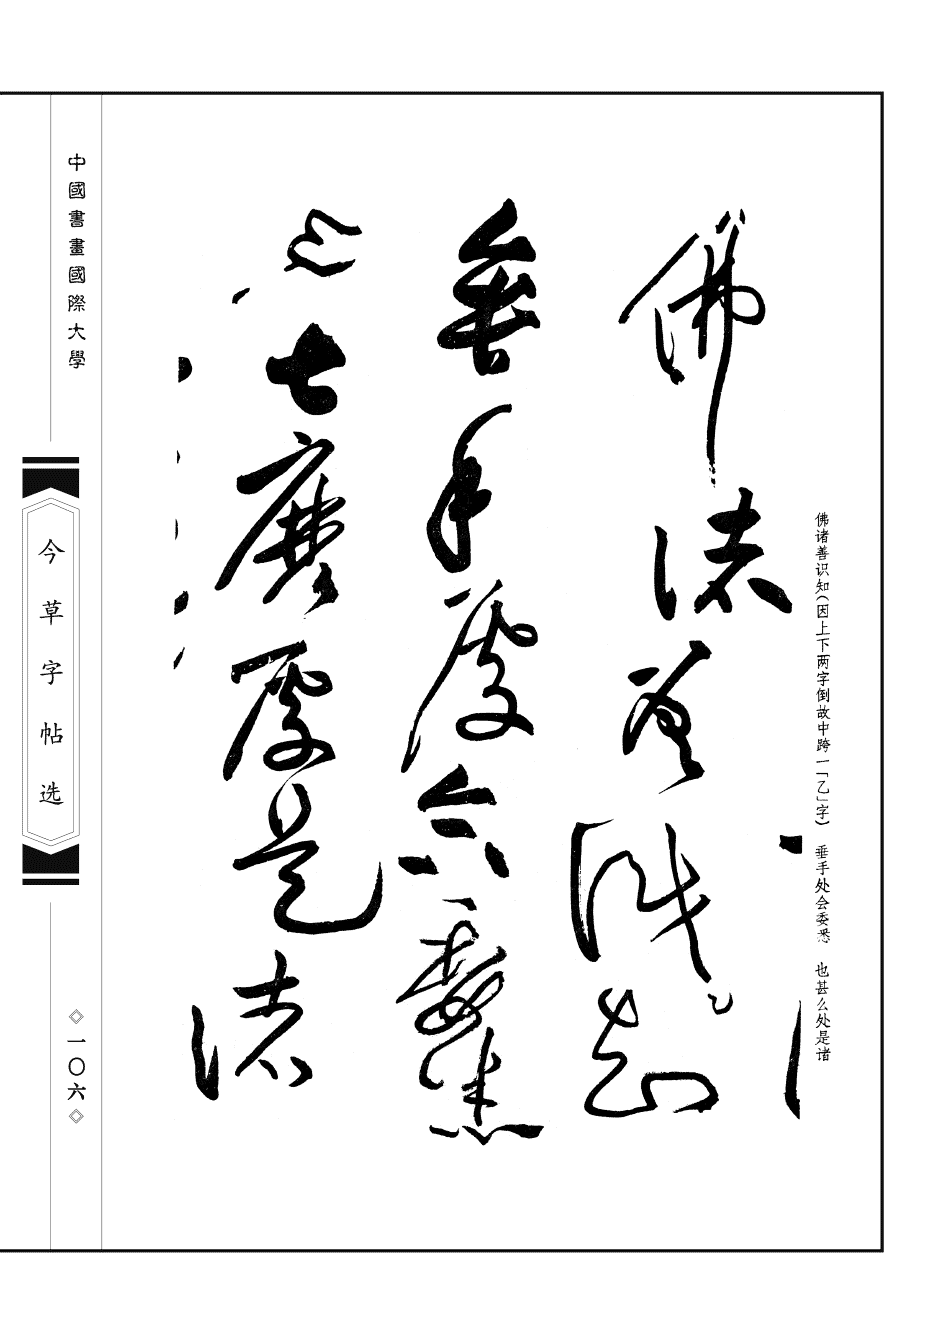 佛诸善识知(因上下两字倒故中跨一「乙」字) 垂手处会委悉 也甚么处是诸
佛諸善識乙知
垂手處會委悉
也甚麼處是諸
中國書畫國際大學
今草字帖选
◇一〇六◇